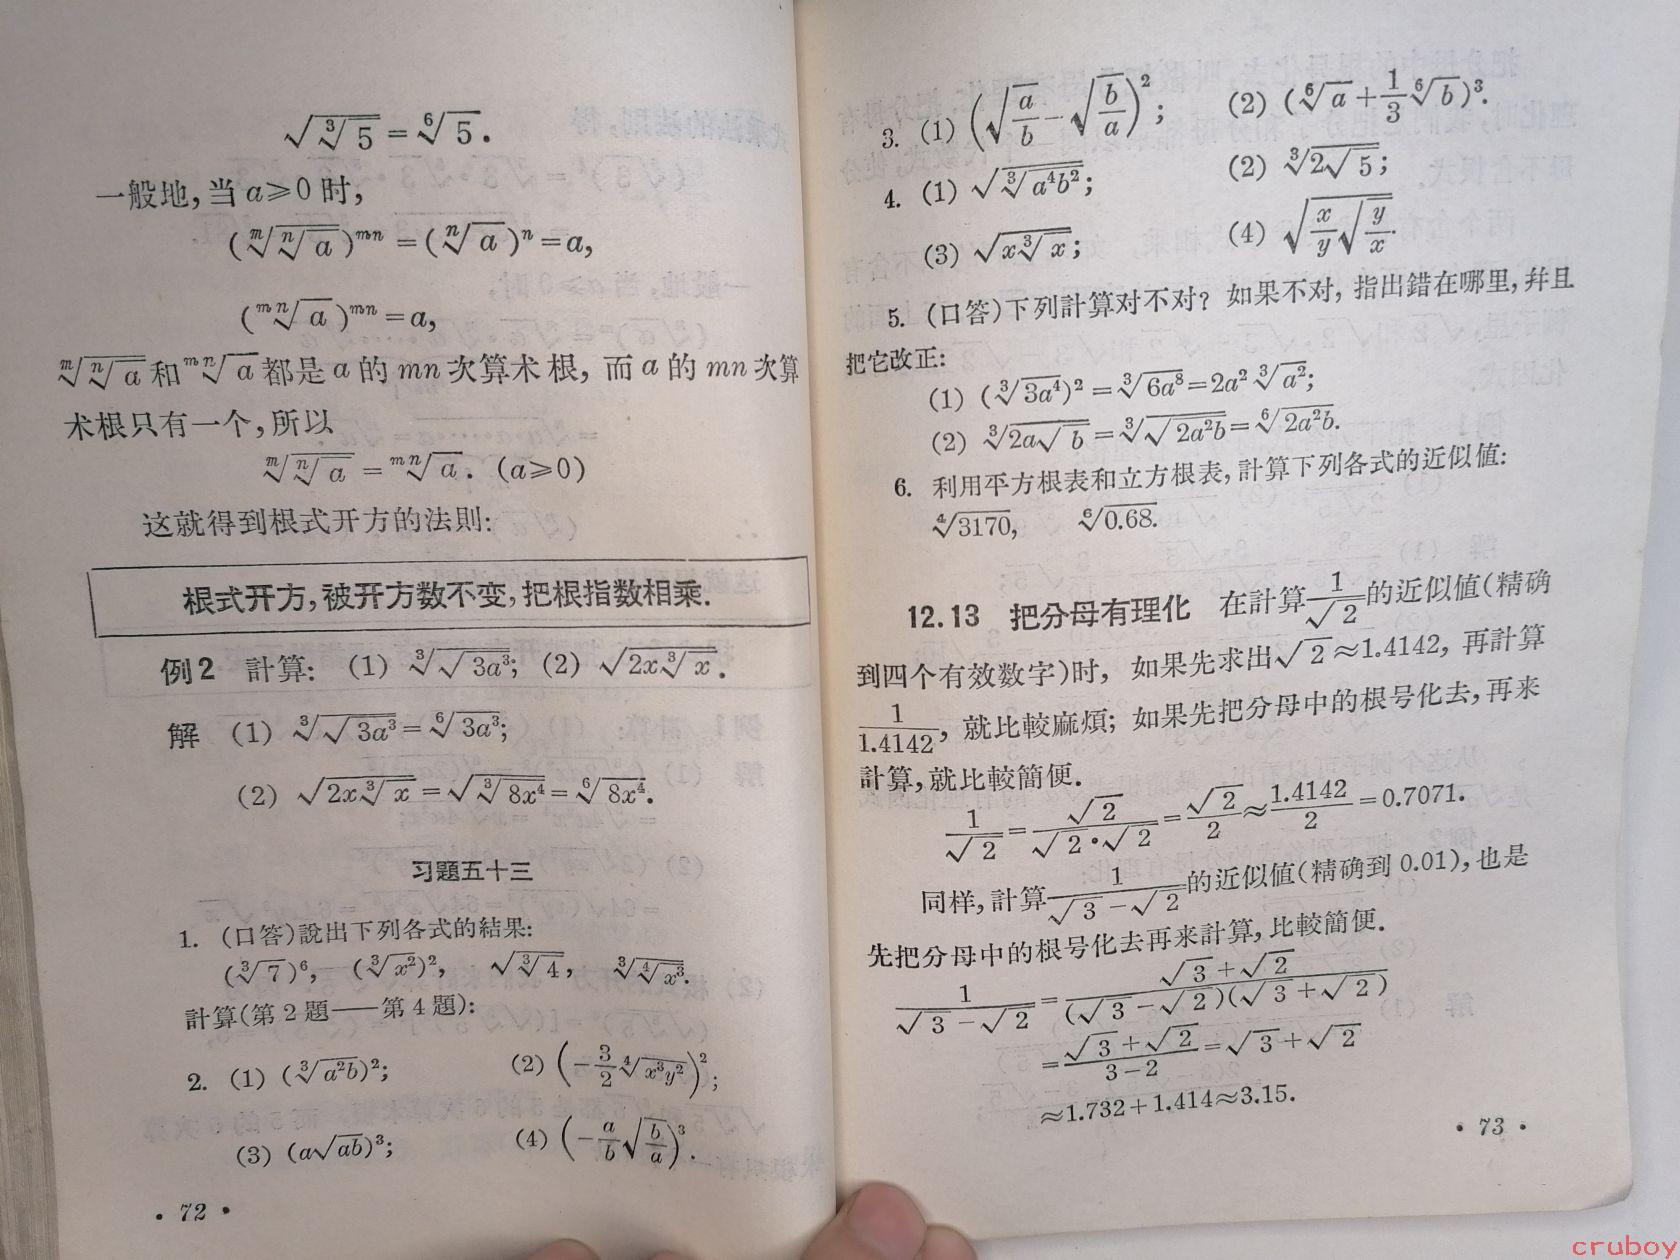 √(∛5) = ⁶√5.
一般地, 当 a⩾0 时,
(ᵐ√(ⁿ√a))ᵐⁿ = (ⁿ√a)ⁿ = a,
(ᵐⁿ√a)ᵐⁿ = a,
ᵐ√(ⁿ√a) 和 ᵐⁿ√a 都是 a 的 mn 次算术根, 而 a 的 mn 次算
术根只有一个, 所以
ᵐ√(ⁿ√a) = ᵐⁿ√a. (a⩾0)
这就得到根式开方的法則:
根式开方, 被开方数不变, 把根指数相乘.
例2 計算: (1) ∛(√(3a³)); (2) √(2x∛x).
解 (1) ∛(√(3a³)) = ⁶√(3a³);
(2) √(2x∛x) = √(∛(8x⁴)) = ⁶√(8x⁴).
习題五十三
1. (口答)說出下列各式的結果:
(∛7)⁶, (∛(x²))², √(∛4), ∛(⁴√(x³)).
計算(第2題——第4題):
2. (1) (∛(a²b))²; (2) (−3/2 ⁴√(x³y²))²;
(3) (a√(ab))³; (4) (−a/b √(b/a))³.
· 72 ·
3. (1) (√(a/b) − √(b/a))²; (2) (⁶√a + 1/3 ⁶√b)³.
4. (1) √(∛(a⁴b²)); (2) ∛(2√5);
(3) √(x∛x); (4) √(x/y √(y/x)).
5. (口答)下列計算对不对? 如果不对, 指出錯在哪里, 幷且
把它改正:
(1) (∛(3a⁴))² = ∛(6a⁸) = 2a²∛(a²);
(2) ∛(2a√b) = ∛(√(2a²b)) = ⁶√(2a²b).
6. 利用平方根表和立方根表, 計算下列各式的近似値:
⁴√3170, ⁶√0.68.
12.13 把分母有理化 在計算 1/√2 的近似値(精确
到四个有效数字)时, 如果先求出 √2≈1.4142, 再計算
1/1.4142, 就比較麻煩; 如果先把分母中的根号化去, 再来
計算, 就比較簡便.
1/√2 = √2/(√2·√2) = √2/2 ≈ 1.4142/2 = 0.7071.
同样, 計算 1/(√3−√2) 的近似値(精确到 0.01), 也是
先把分母中的根号化去再来計算, 比較簡便.
1/(√3−√2) = (√3+√2)/((√3−√2)(√3+√2))
= (√3+√2)/(3−2) = √3+√2
≈1.732+1.414≈3.15.
· 73 ·
cruboy